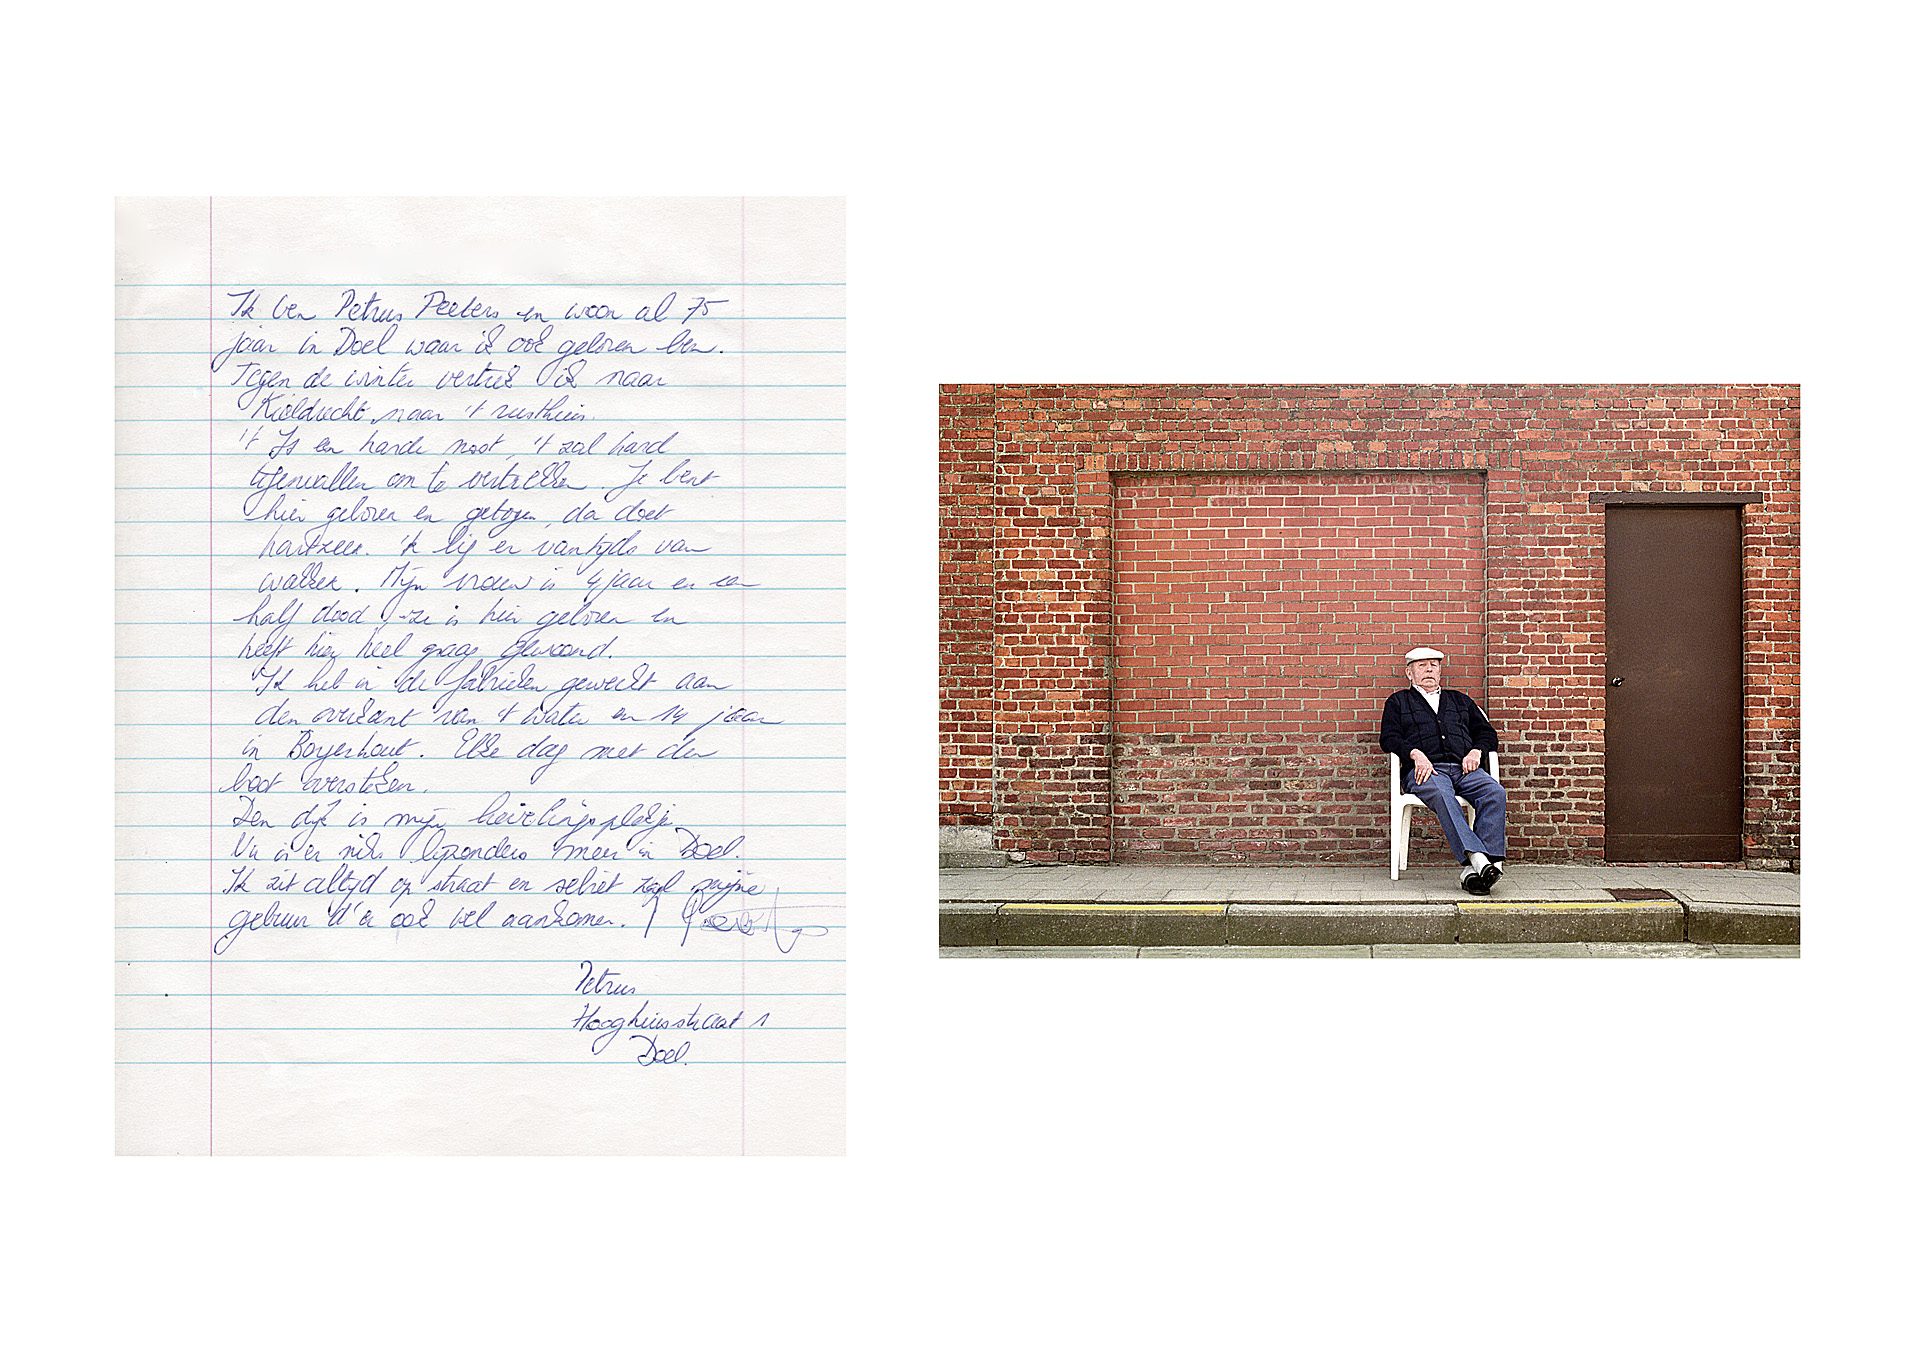 Ik ben Petrus Peeters en woon al 75
jaar in Doel waar ik ook geboren ben.
Tegen de winter vertrek ik naar
Kieldrecht naar 't rusthuis.
't Is een harde noot, 't zal hard
tegenvallen om te vertrekken. Je bent
hier geboren en getogen, da doet
hartzeer. 'k lig er vantijds van
wakker. Mijn vrouw is 4 jaar en een
half dood, ze is hier geboren en
heeft hier heel graag gewoond.
Ik heb in de fabrieken gewerkt aan
den overkant van 't water en 14 jaar
in Boyerhout. Elke dag met den
boot oversteken.
Den dijk is mijn lievelingsplekje.
Nu is er niks bijzonders meer in Doel.
Ik zit altijd op straat en seffest zal mijne
gebuur d'er ook wel aankomen.
Petrus
Hooghuisstraat 1
Doel.